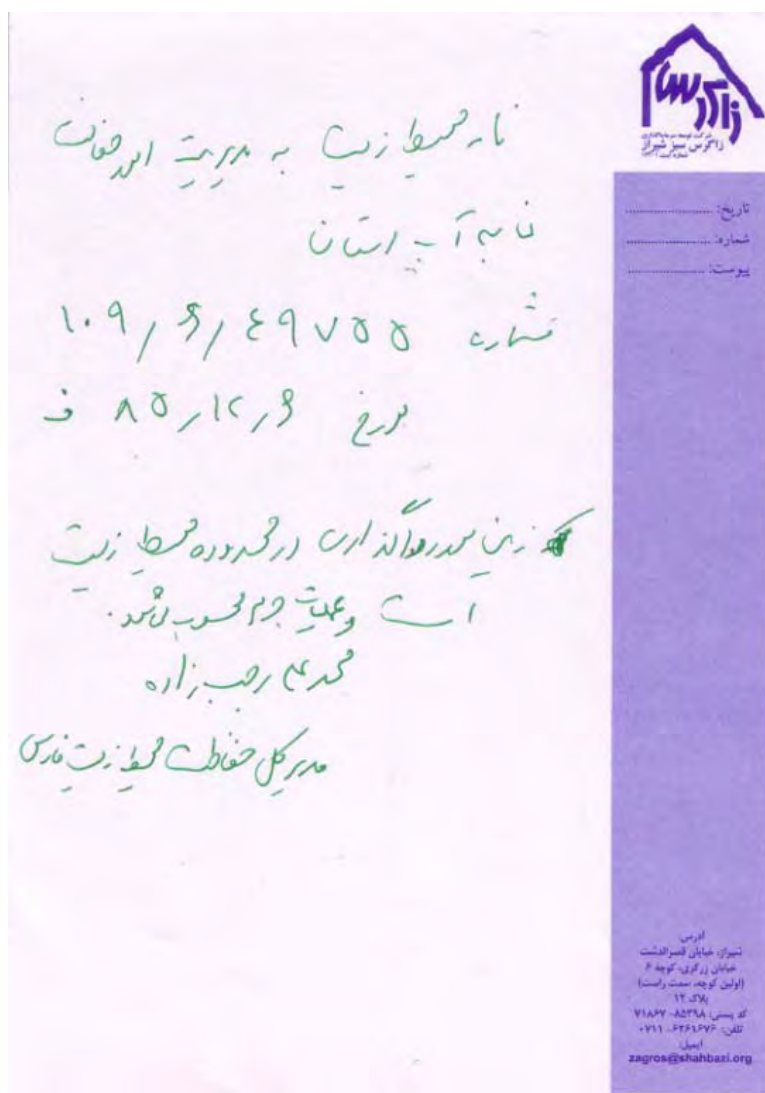 زاگرس
شرکت توسعه سرمایه‌گذاری
زاگرس سبز شیراز
تاریخ: ......................
شماره: ......................
پیوست: ......................
نامه محیط زیست به مدیریت امور
آب استان
شماره ۱۰۹/۶/۴۹۷۵۵
مورخ ۸۵/۱۲/۶ ف
زمین مورد واگذاری در محدوده محیط زیست
است و عملیات جرم محسوب می‌شود.
محمد علی رجب زاده
مدیر کل حفاظت محیط زیست فارس
آدرس:
شیراز، خیابان قصرالدشت
خیابان زرگری، کوچه ۶
(اولین کوچه، سمت راست)
پلاک ۱۲
کد پستی: ۸۵۳۹۸-۷۱۸۶۷
تلفن: ۶۲۶۱۶۷۶-۰۷۱۱
ایمیل:
zagros@shahbazi.org